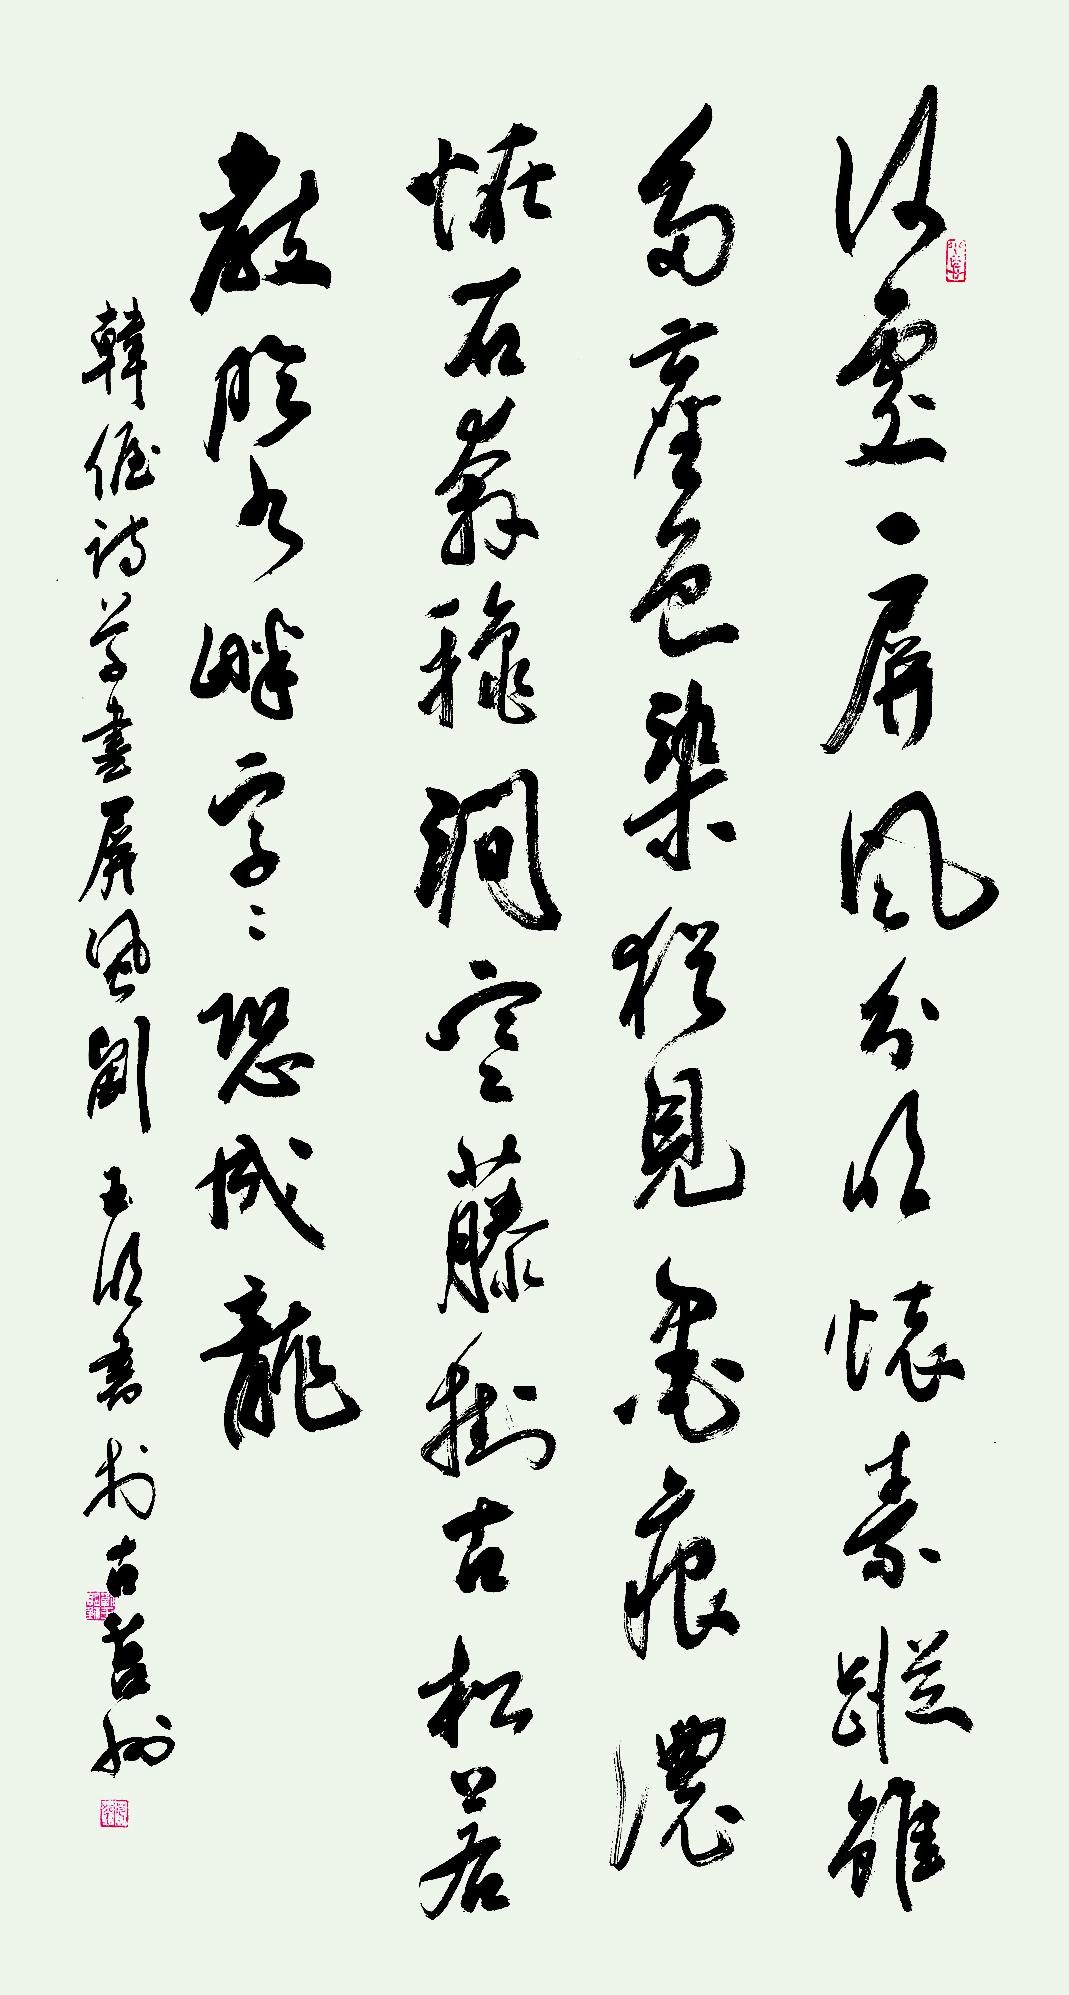 何處一屏風分明懷素蹤雖
多塵色染猶見墨痕濃
怪石奔秋澗寒藤掛古松若
教臨水畔字〻恐成龍
韓偓詩草書屏風劉玉明書於古莒州